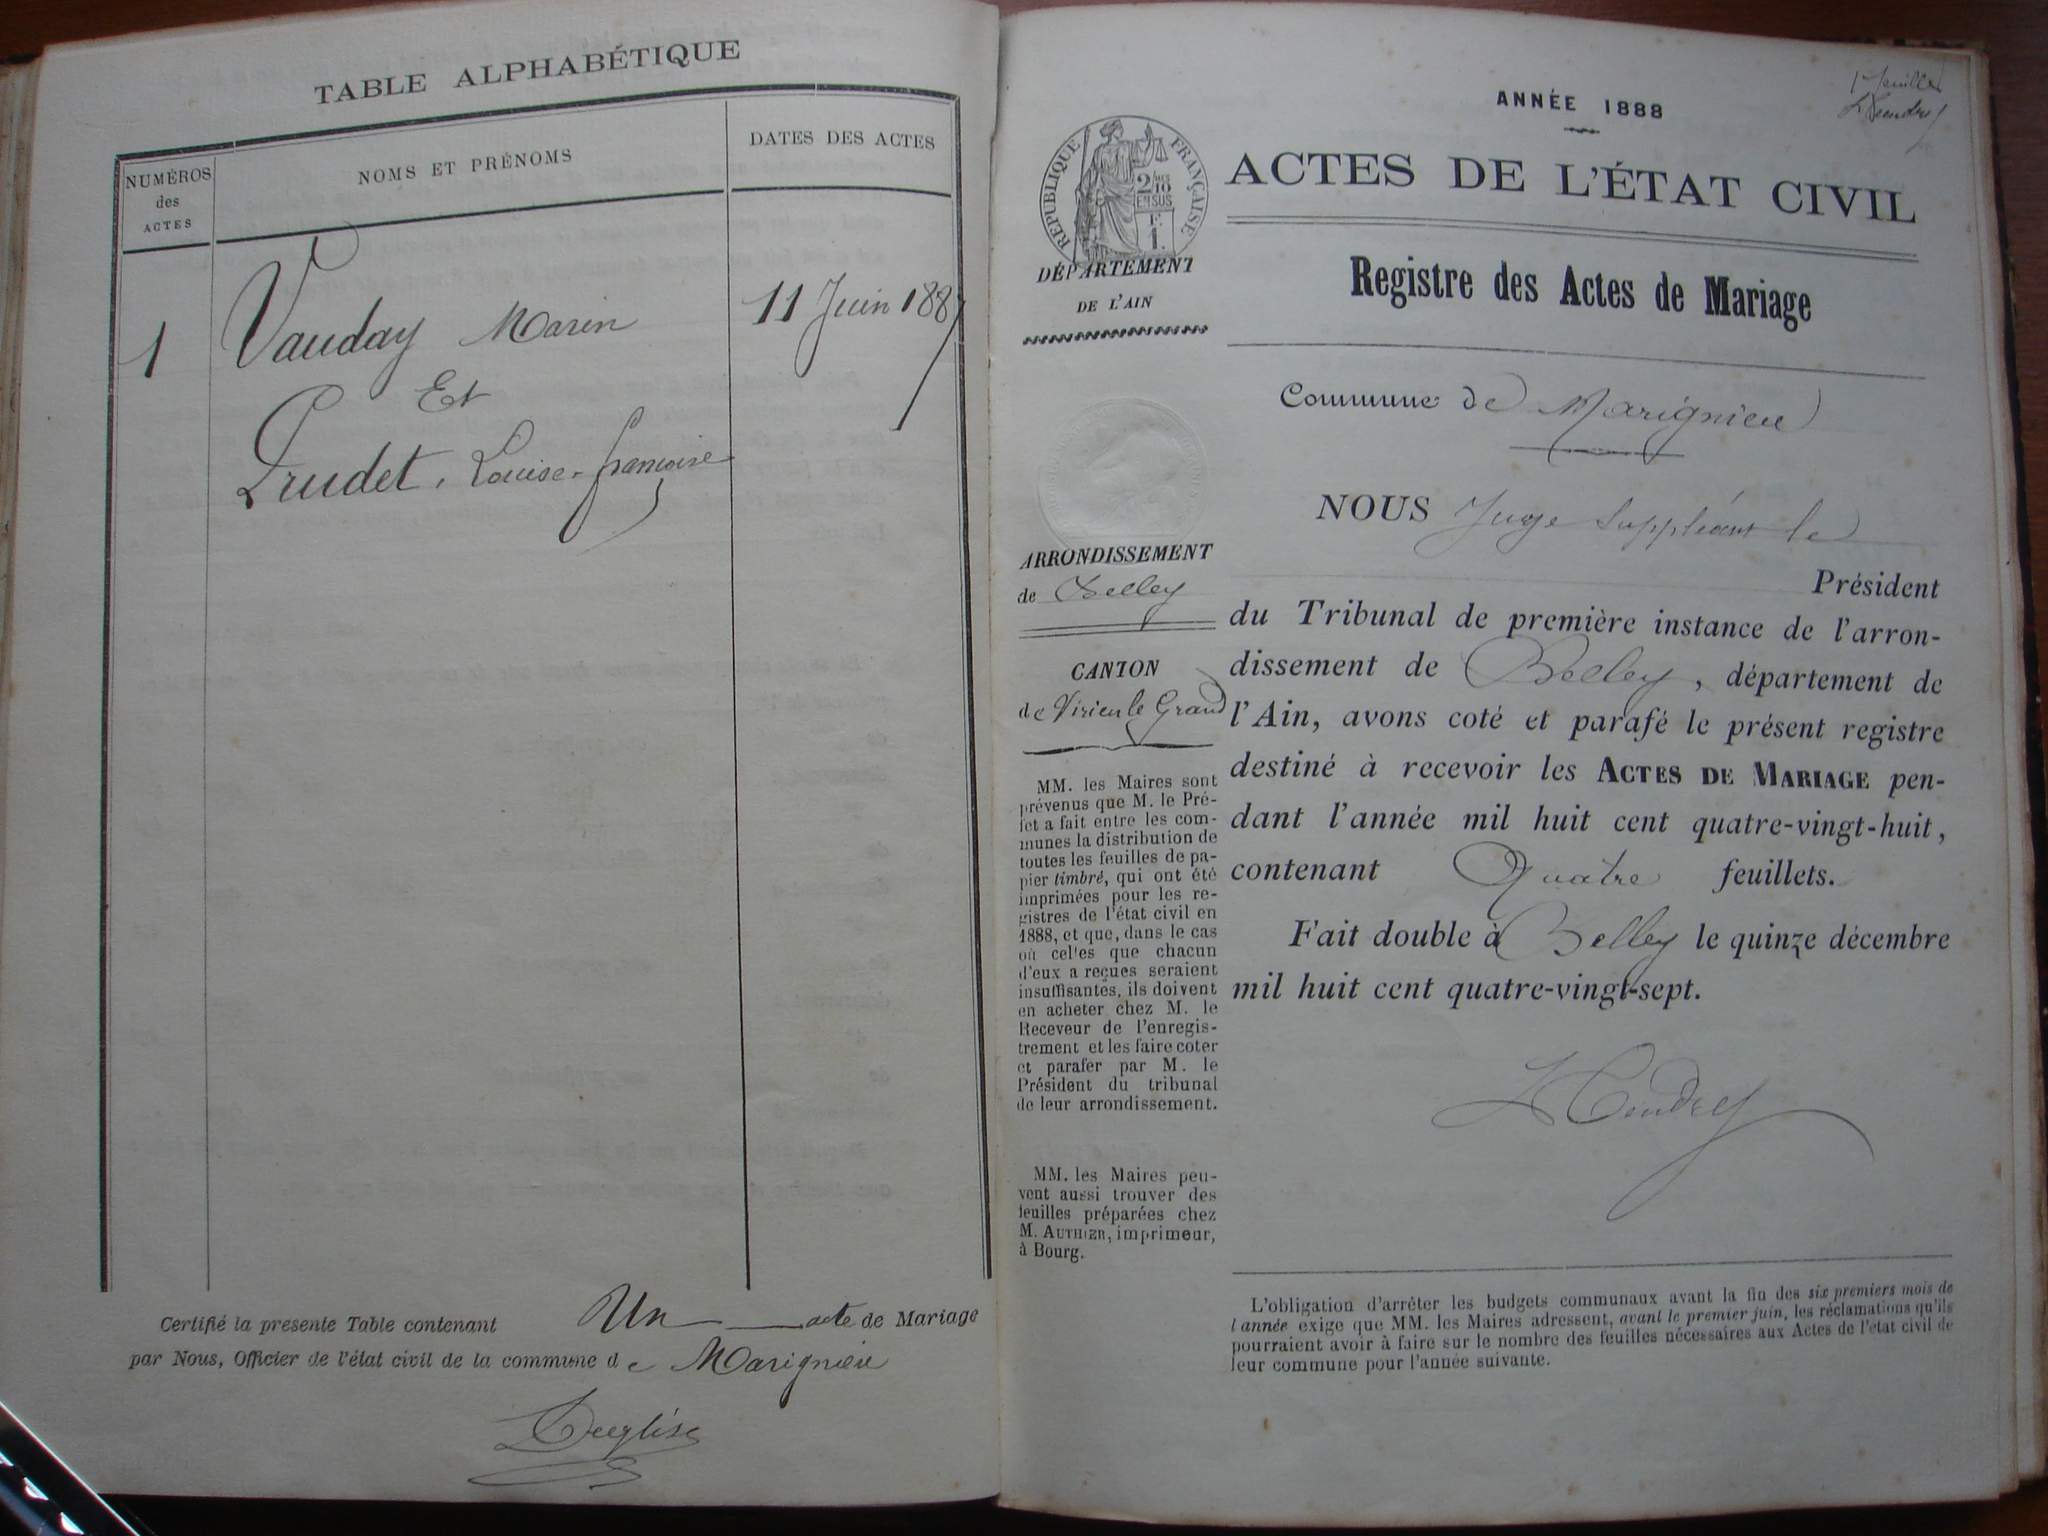 TABLE ALPHABÉTIQUE
NUMÉROS
des
ACTES
NOMS ET PRÉNOMS
DATES DES ACTES
1
Vauday Marin
11 Juin 1887
Et
Prudet, Louise-françoise
Certifié la presente Table contenant Un acte de Mariage
par Nous, Officier de l'état civil de la commune de Marignieu
Deeglise
1r feuillet
ANNÉE 1888
RÉPUBLIQUE FRANÇAISE
2/10
EN SUS
F
1.
ACTES DE L'ÉTAT CIVIL
Registre des Actes de Mariage
DÉPARTEMENT
DE L'AIN
Commune de Marignieu
NOUS Juge Suppléant le
Président
du Tribunal de première instance de l'arron-
dissement de Belley, département de
l'Ain, avons coté et parafé le présent registre
destiné à recevoir les ACTES DE MARIAGE pen-
dant l'année mil huit cent quatre-vingt-huit,
contenant Quatre feuillets.
Fait double à Belley le quinze décembre
mil huit cent quatre-vingt-sept.
ARRONDISSEMENT
de Belley
CANTON
de Virieu le Grand
MM. les Maires sont
prévenus que M. le Pré-
fet a fait entre les com-
munes la distribution de
toutes les feuilles de pa-
pier timbré, qui ont été
imprimées pour les re-
gistres de l'état civil en
1888, et que, dans le cas
où celles que chacun
d'eux a reçues seraient
insuffisantes, ils doivent
en acheter chez M. le
Receveur de l'enregis-
trement et les faire coter
et parafer par M. le
Président du tribunal
de leur arrondissement.
MM. les Maires peu-
vent aussi trouver des
feuilles préparées chez
M. AUTHIER, imprimeur,
à Bourg.
L'obligation d'arrêter les budgets communaux avant la fin des six premiers mois de
l'année exige que MM. les Maires adressent, avant le premier juin, les réclamations qu'ils
pourraient avoir à faire sur le nombre des feuilles nécessaires aux Actes de l'état civil de
leur commune pour l'année suivante.